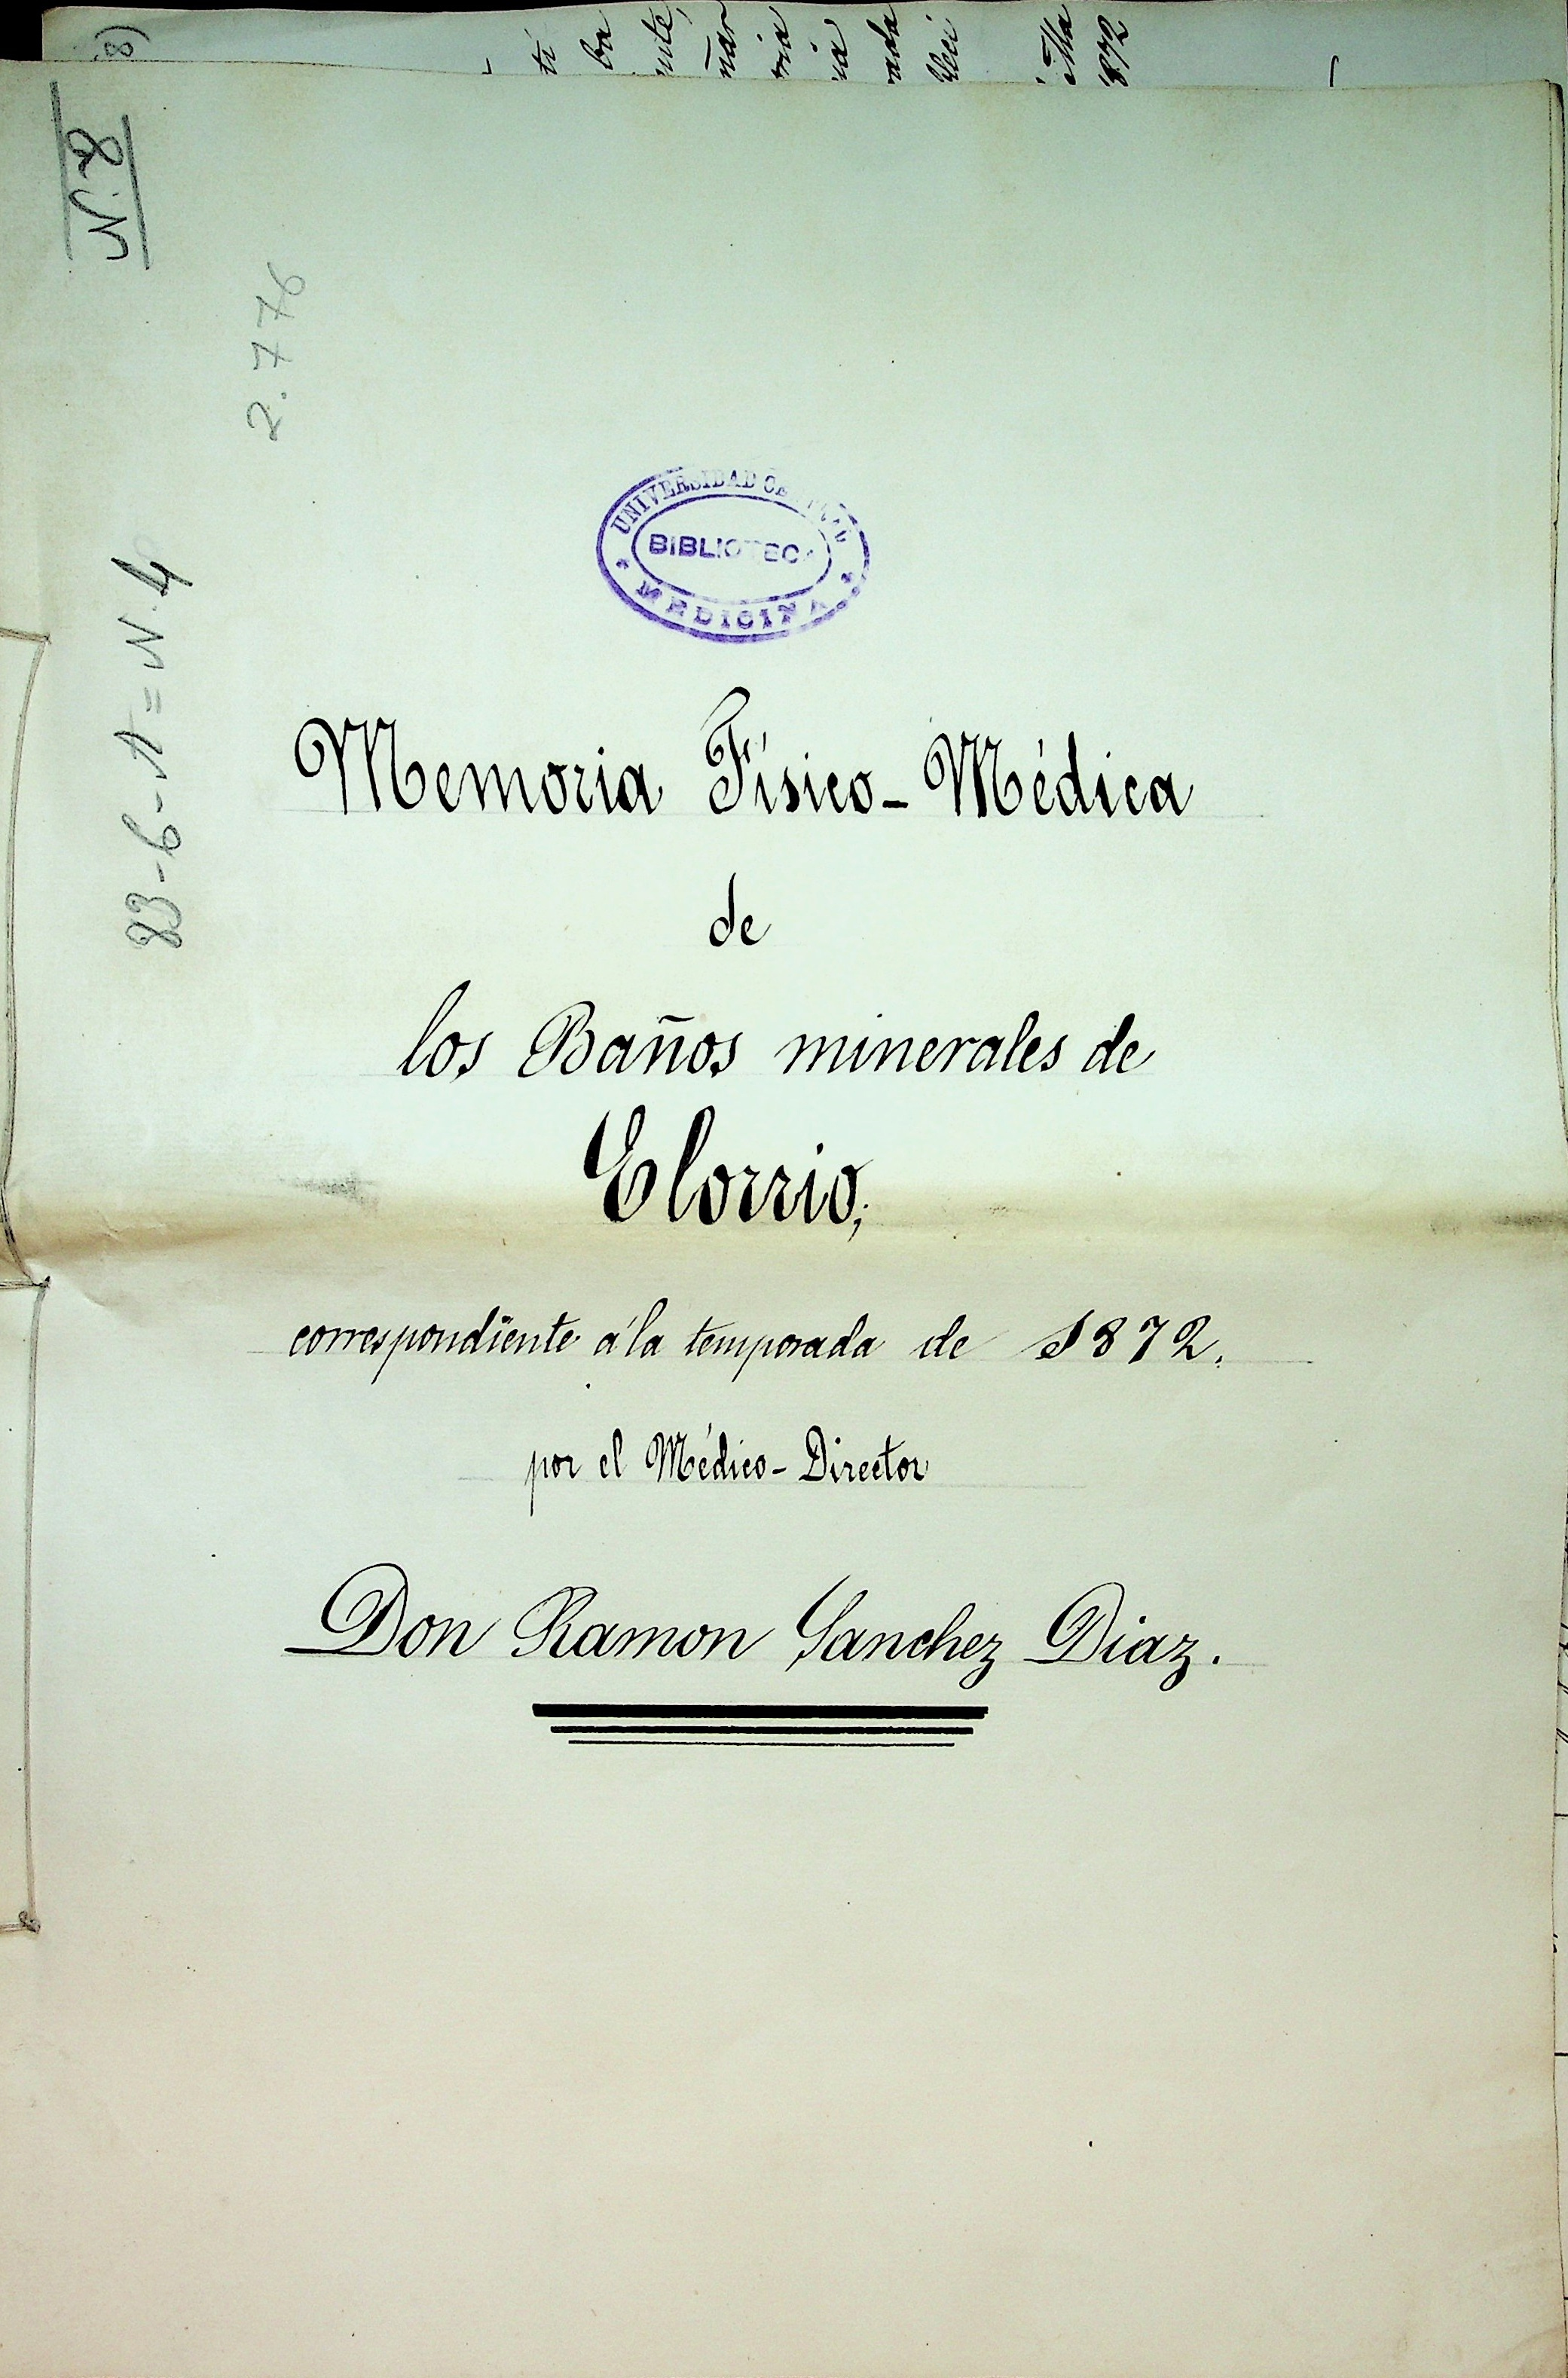 N. 8
2.776
83-6-A=N.4
UNIVERSIDAD
BIBLIOTECA
MEDICINA
Memoria Físico-Médica
de
los Baños minerales de
Elorrio,
correspondiente á la temporada de 1872.
por el Médico-Director
Don Ramon Sanchez Diaz.